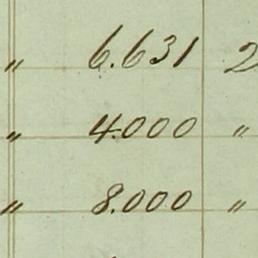 " 6.631 2
" 4.000 "
" 8.000 "